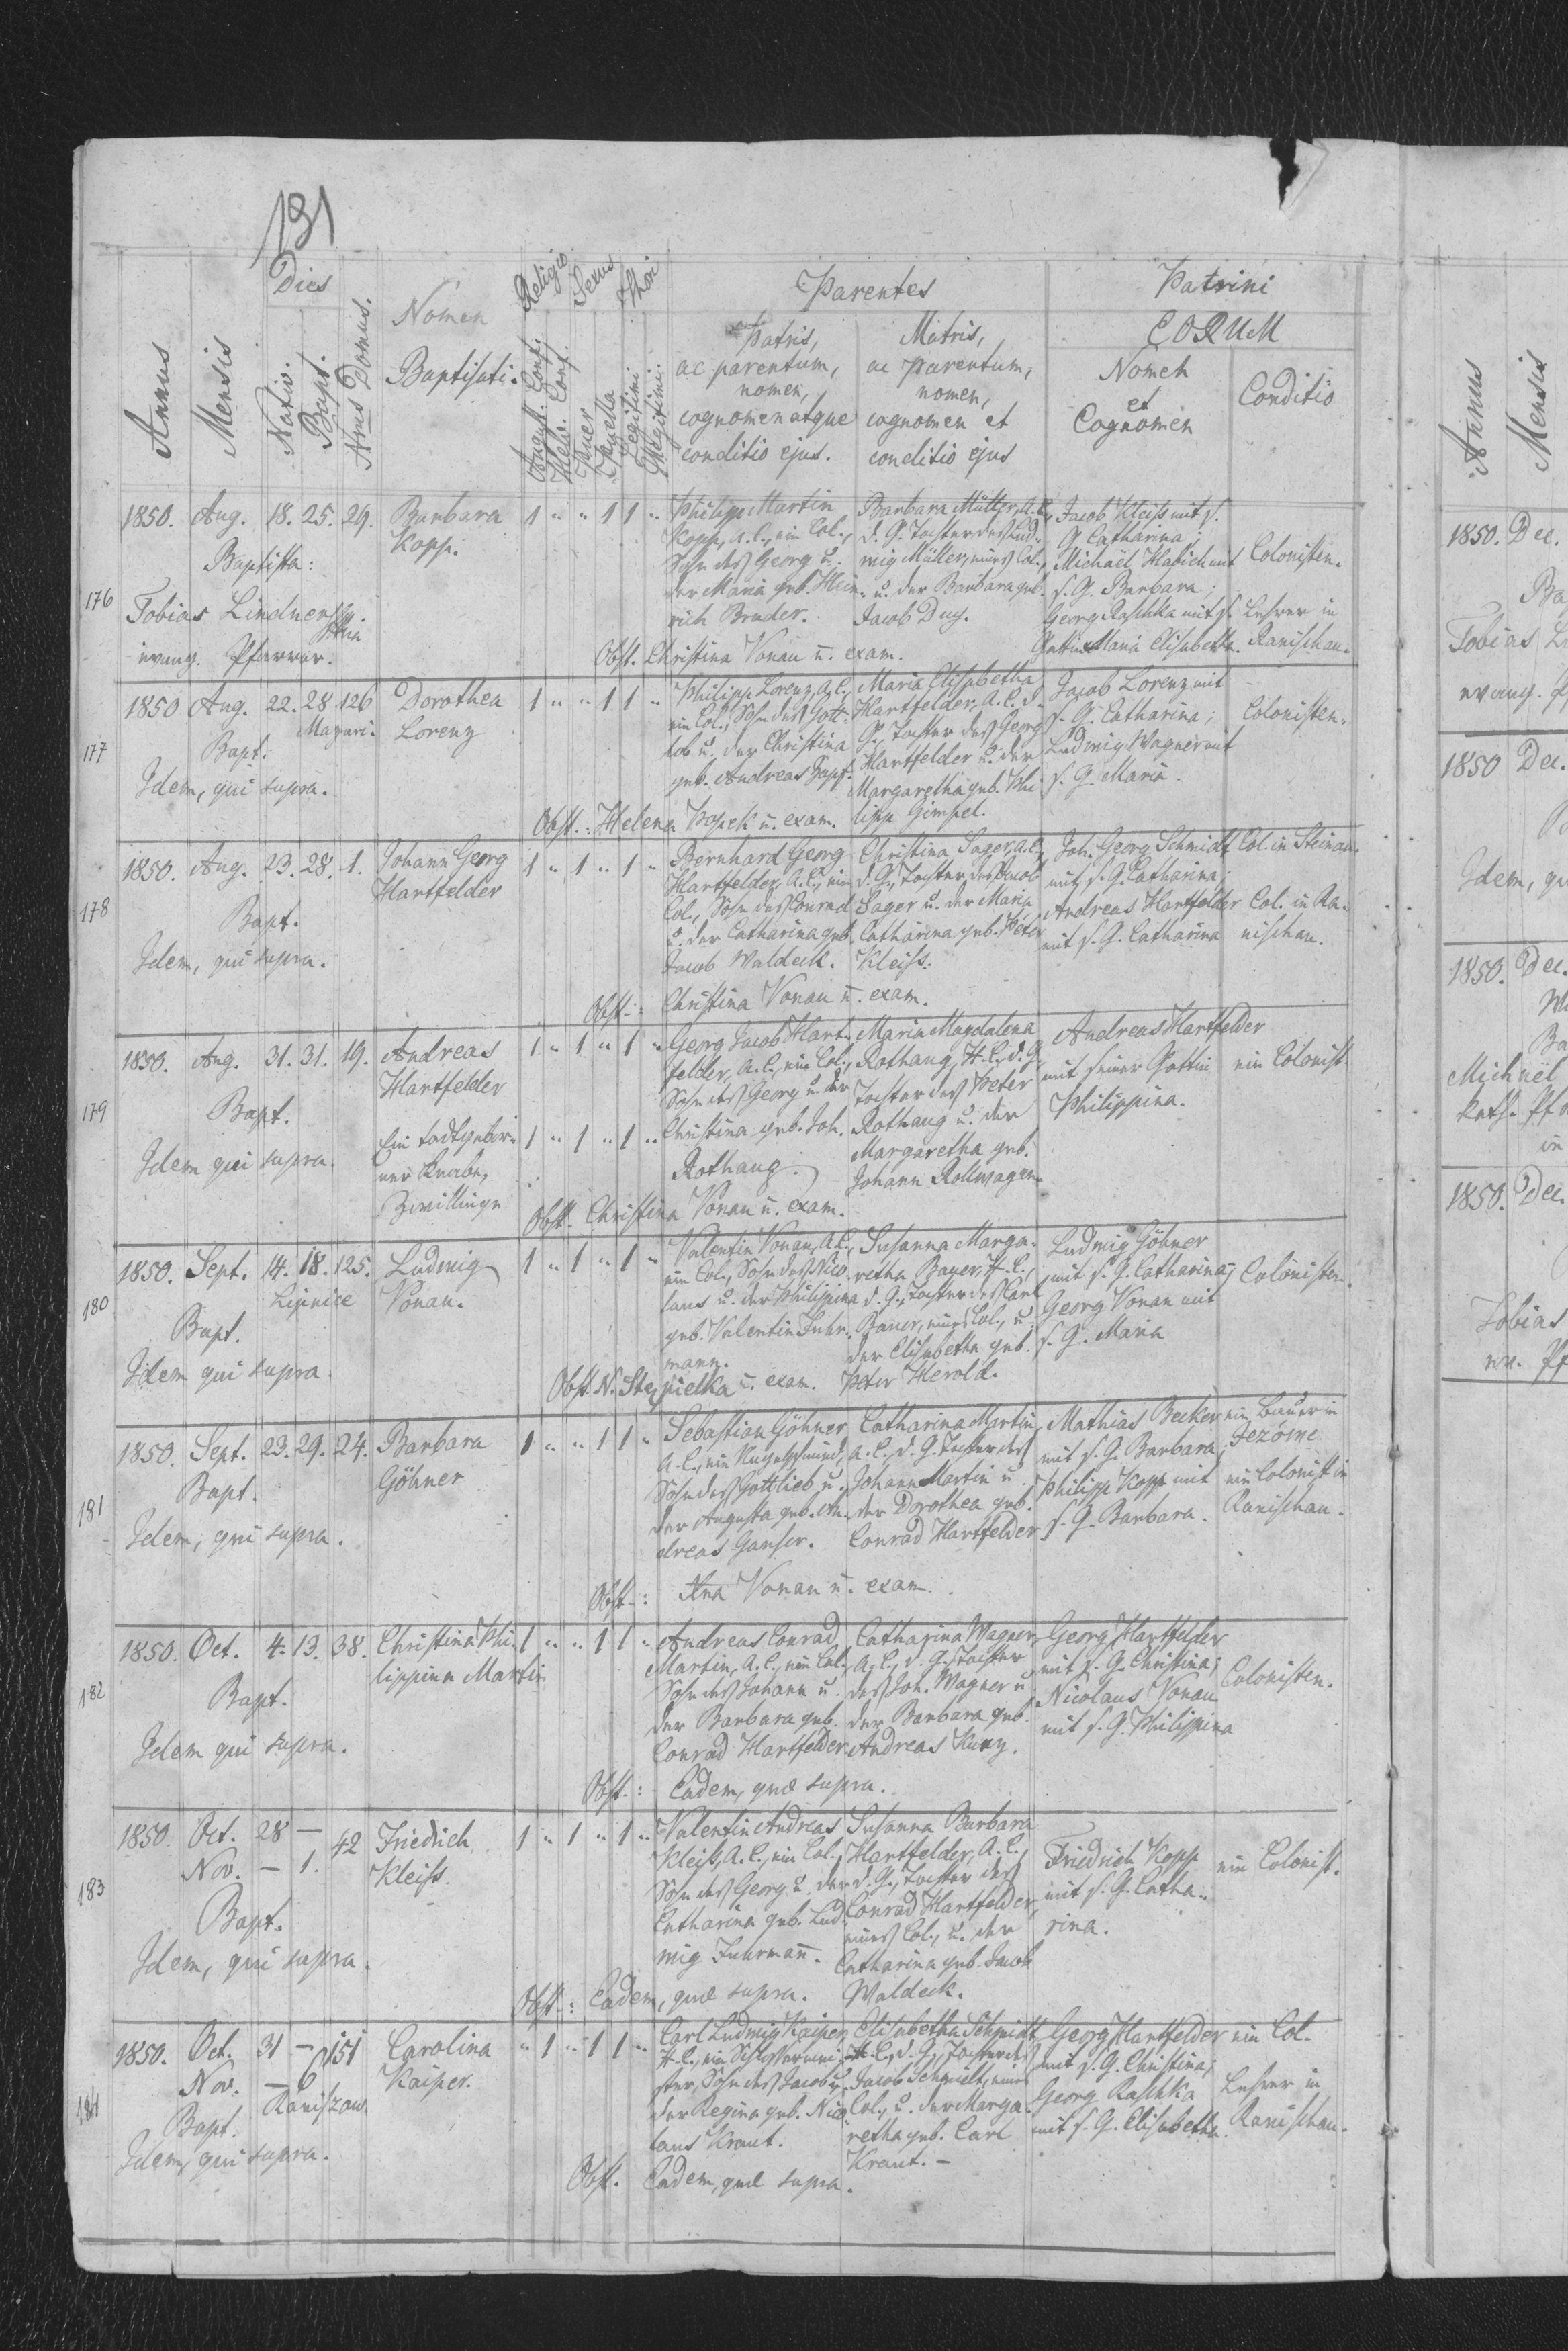 131
Annus
Mensis
Dies
Nativ.
Bapt.
Nrus Domus.
Nomen
Baptisati.
Religio
Sexus
Thori
August. Conf.
Helv. Conf.
Puer
Puella
Legitimi
Illegitimi.
Parentes
Patris,
ac parentum,
nomen,
cognomen atque
conditio ejus.
Matris,
ac parentum,
nomen,
cognomen et
conditio ejus
Patrini
EORUM
Nomen
et
Cognomen
Conditio
176
1850. Aug. 18. 25. 29.
Baptista:
Tobias Lindner
evang. Pfarrer.
Barbara
Kopp.
1 " " 1 1 "
Philipp Martin
Kopp, A. C., ein Col.,
Sohn des Georg u.
der Maria geb. Hein-
rich Bruder.
Barbara Müller, A. C.,
d. G. Tochter des Lud-
wig Müller, eines Col.,
u. der Barbara geb.
Jacob Duy.
Jacob Kleiß mit s.
G. Catharina;
Michaël Habich mit
s. G. Barbara;
Georg Raschka mit s.
Gattin Maria Elisabetha.
Colonisten.
Lehrer in
Ranischau.
Obst. Christina Vonau u. exam.
177
1850 Aug. 22. 28. 126
Mazari.
Bapt.
Idem, qui supra.
Dorothea
Lorenz
1 " " 1 1 "
Philipp Lorenz, A. C.,
ein Col., Sohn des Gott-
lob u. der Christina
geb. Andreas Zapf.
Maria Elisabetha
Hartfelder, A. C. d.
G., Tochter des Georg
Hartfelder u. der
Margaretha geb. Phi-
lipp Gimpel.
Jacob Lorenz mit
s. G. Catharina;
Ludwig Wagner mit
s. G. Maria.
Colonisten.
Obst.: Helena Popek u. exam.
178
1850. Aug. 23. 28. 1.
Bapt.
Idem, qui supra.
Johann Georg
Hartfelder
1 " 1 " 1 "
Bernhard Georg
Hartfelder, A. C., ein
Col., Sohn des Conrad
u. der Catharina geb.
Jacob Waldeck.
Christina Sager, A. C.,
d. G., Tochter des Jacob
Sager u. der Maria
Catharina geb. Peter
Kleiß.
Joh. Georg Schmidt
mit s. G. Catharina;
Andreas Hartfelder
mit s. G. Catharina
Col. in Steinau.
Col. in Ra-
nischau.
Obst.: Christina Vonau u. exam.
179
1850. Aug. 31. 31. 19.
Bapt.
Idem qui supra.
Andreas
Hartfelder
Ein todtgebor-
ner Knabe,
Zwillinge
1 " 1 " 1 "
1 " 1 " 1 "
Georg Jacob Hart-
felder, A. C., ein Col.,
Sohn des Georg u. der
Christina geb. Joh.
Rothaug.
Maria Magdalena
Rothaug, H. C., d. G.,
Tochter des Peter
Rothaug u. der
Margaretha geb.
Johann Rollwagen.
Andreas Hartfelder
mit seiner Gattin
Philippina.
ein Colonist.
Obst. Christina Vonau u. exam.
180
1850. Sept. 14. 18. 125.
Lipnice
Bapt.
Idem qui supra.
Ludwig
Vonau.
1 " 1 " 1 "
Valentin Vonau, A. C.,
ein Col., Sohn des Nico-
laus u. der Philippina
geb. Valentin Fuhr-
mann.
Susanna Marga-
retha Bauer, H. C.,
d. G., Tochter des Carl
Bauer, eines Col., u.
der Elisabetha geb.
Peter Herold.
Ludwig Göhner
mit s. G. Catharina;
Georg Vonau mit
s. G. Maria
Colonisten.
Obst. N. Stezpielka u. exam.
181
1850. Sept. 23. 29. 24.
Bapt.
Idem, qui supra.
Barbara
Göhner
1 " " 1 1 "
Sebastian Göhner
A. C., ein Nagelschmied,
Sohn des Gottlieb u.
der Augusta geb. An-
dreas Ganser.
Catharina Martin,
A. C., d. G. Tochter des
Johann Martin u.
der Dorothea geb.
Conrad Hartfelder
Mathias Becker
mit s. G. Barbara;
Philipp Kopp mit
s. G. Barbara.
ein Bauer in
Jezórne
ein Colonist in
Ranischau.
Obst.: Ana Vonau u. exam.
182
1850. Oct. 4. 13. 38.
Bapt.
Idem qui supra.
Christina Phi-
lippina Martin
1 " " 1 1 "
Andreas Conrad
Martin, A. C., ein Col.,
Sohn des Johann u.
der Barbara geb.
Conrad Hartfelder.
Catharina Wagner,
A. C., d. G. Tochter
des Joh. Wagner u.
der Barbara geb.
Andreas Kunz.
Georg Hartfelder
mit s. G. Christina;
Nicolaus Vonau
mit s. G. Philippina
Colonisten.
Obst.: Eadem, quæ supra.
183
1850. Oct. 28 —
Nov. — 1. 42
Bapt.
Idem, qui supra.
Friedrich
Kleiss.
1 " 1 " 1 "
Valentin Andreas
Kleiß, A. C., ein Col.,
Sohn des Georg u. der
Catharina geb. Lud-
wig Fuhrmann.
Susanna Barbara
Hartfelder, A. C.,
d. G., Tochter des
Conrad Hartfelder,
eines Col., u. der
Catharina geb. Jacob
Waldeck.
Friedrich Kopp
mit s. G. Catha-
rina.
ein Colonist.
Obst.: Eadem, quæ supra.
184
1850. Oct. 31 — 151
Nov. — 6
Raniszau.
Bapt.
Idem, qui supra.
Carolina
Kaiper.
" 1 " 1 1 "
Carl Ludwig Kaiper,
H. C., ein Schlossermei-
ster, Sohn des Jacob u.
der Regina geb. Nico-
laus Kraut.
Elisabetha Schmidt
H. C., d. G., Tochter des
Jacob Schmidt, eines
Col., u. der Marga-
retha geb. Carl
Kraut. —
Georg Hartfelder
mit s. G. Christina;
Georg Raschka
mit s. G. Elisabetha.
ein Col.
Lehrer in
Ranischau.
Obst. Eadem, quæ supra.
Annus
Mensis
1850. Dec.
Tobias
evang.
1850 Dec.
Idem,
1850. Dec.
Michaël
kath.
in
1850. Dec.
Tobias